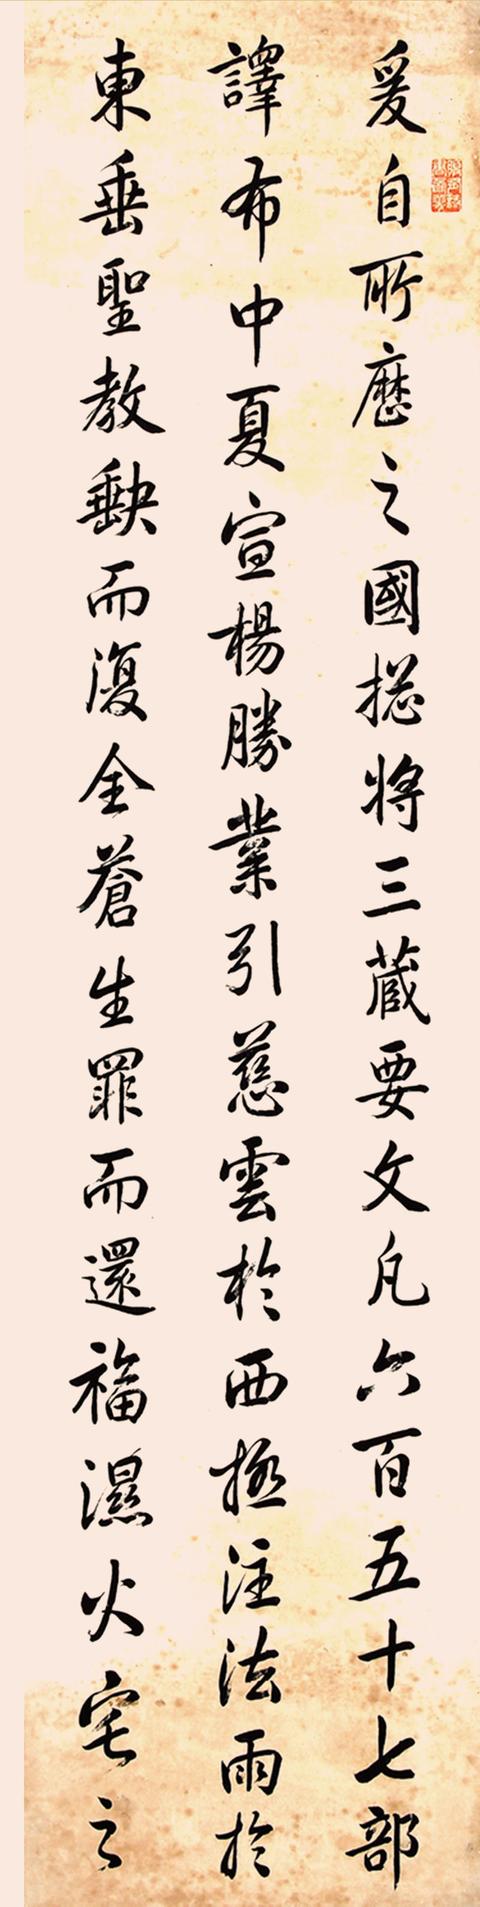 爰自所歷之國揔將三藏要文凡六百五十七部
譯布中夏宣楊勝業引慈雲於西極注法雨於
東垂聖教缺而復全蒼生罪而還福濕火宅之